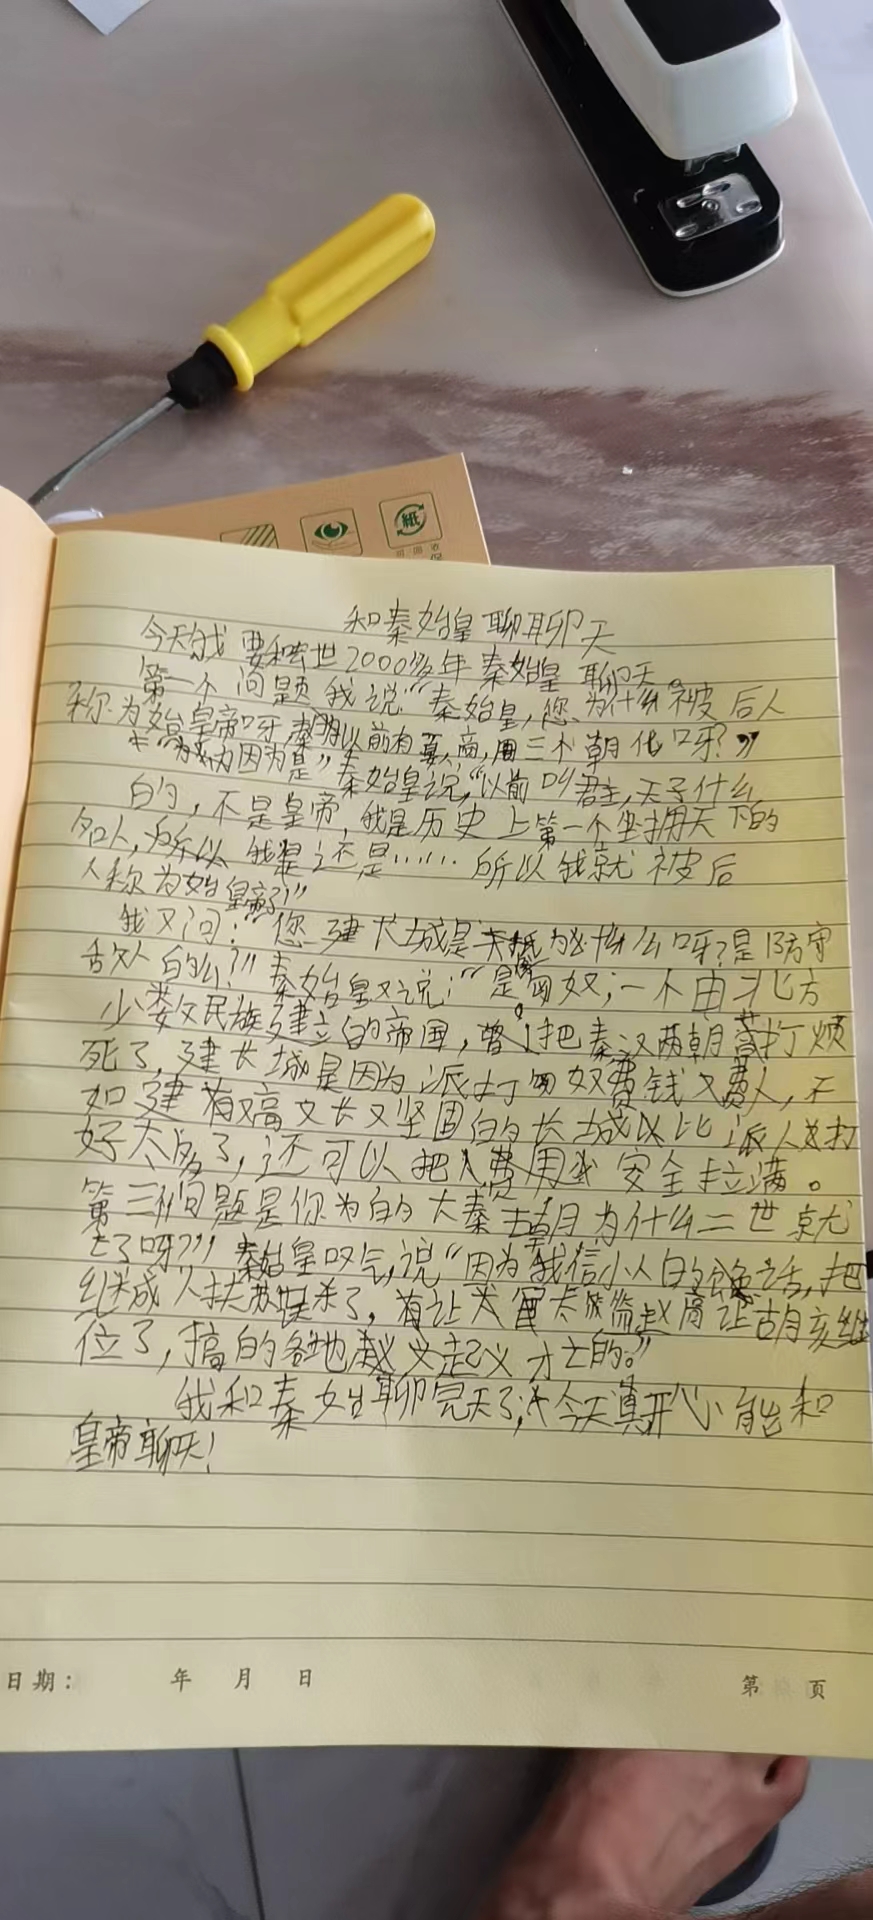 紙
可回收
和秦始皇聊聊天
今天我要和去世2000多年秦始皇聊天。
第一个问题我说“秦始皇,您为什么被后人
称为始皇帝呀,秦朝以前有夏,商,周三个朝代呀?”
“因为是”秦始皇说,“以前叫君主,天子什么
的,不是皇帝,我是历史上第一个坐拥天下的
名人,所以我是还是……所以我就被后
人称为始皇帝了!”
我又问:“您建长城是为什么呀?是防守
敌人的么?”秦始皇又说:“是匈奴;一个由北方
少数民族建立的帝国,曾把秦汉两朝打烦
死了,建长城是因为派打匈奴费钱又费人,不
如建有又高又长又坚固的长城以比派人去打
好太多了,还可以把人费用安全拉满。
第三个问题是你为的大秦朝为什么二世就
亡了呀?”秦始皇叹气,说“因为我信小人的话,把
继承人扶苏误杀了,有让赵高让胡亥继
位了,搞的各地起义才亡的。”
我和秦始聊完天了,今天真开心能和
皇帝聊天!
日期: 年 月 日
第 页